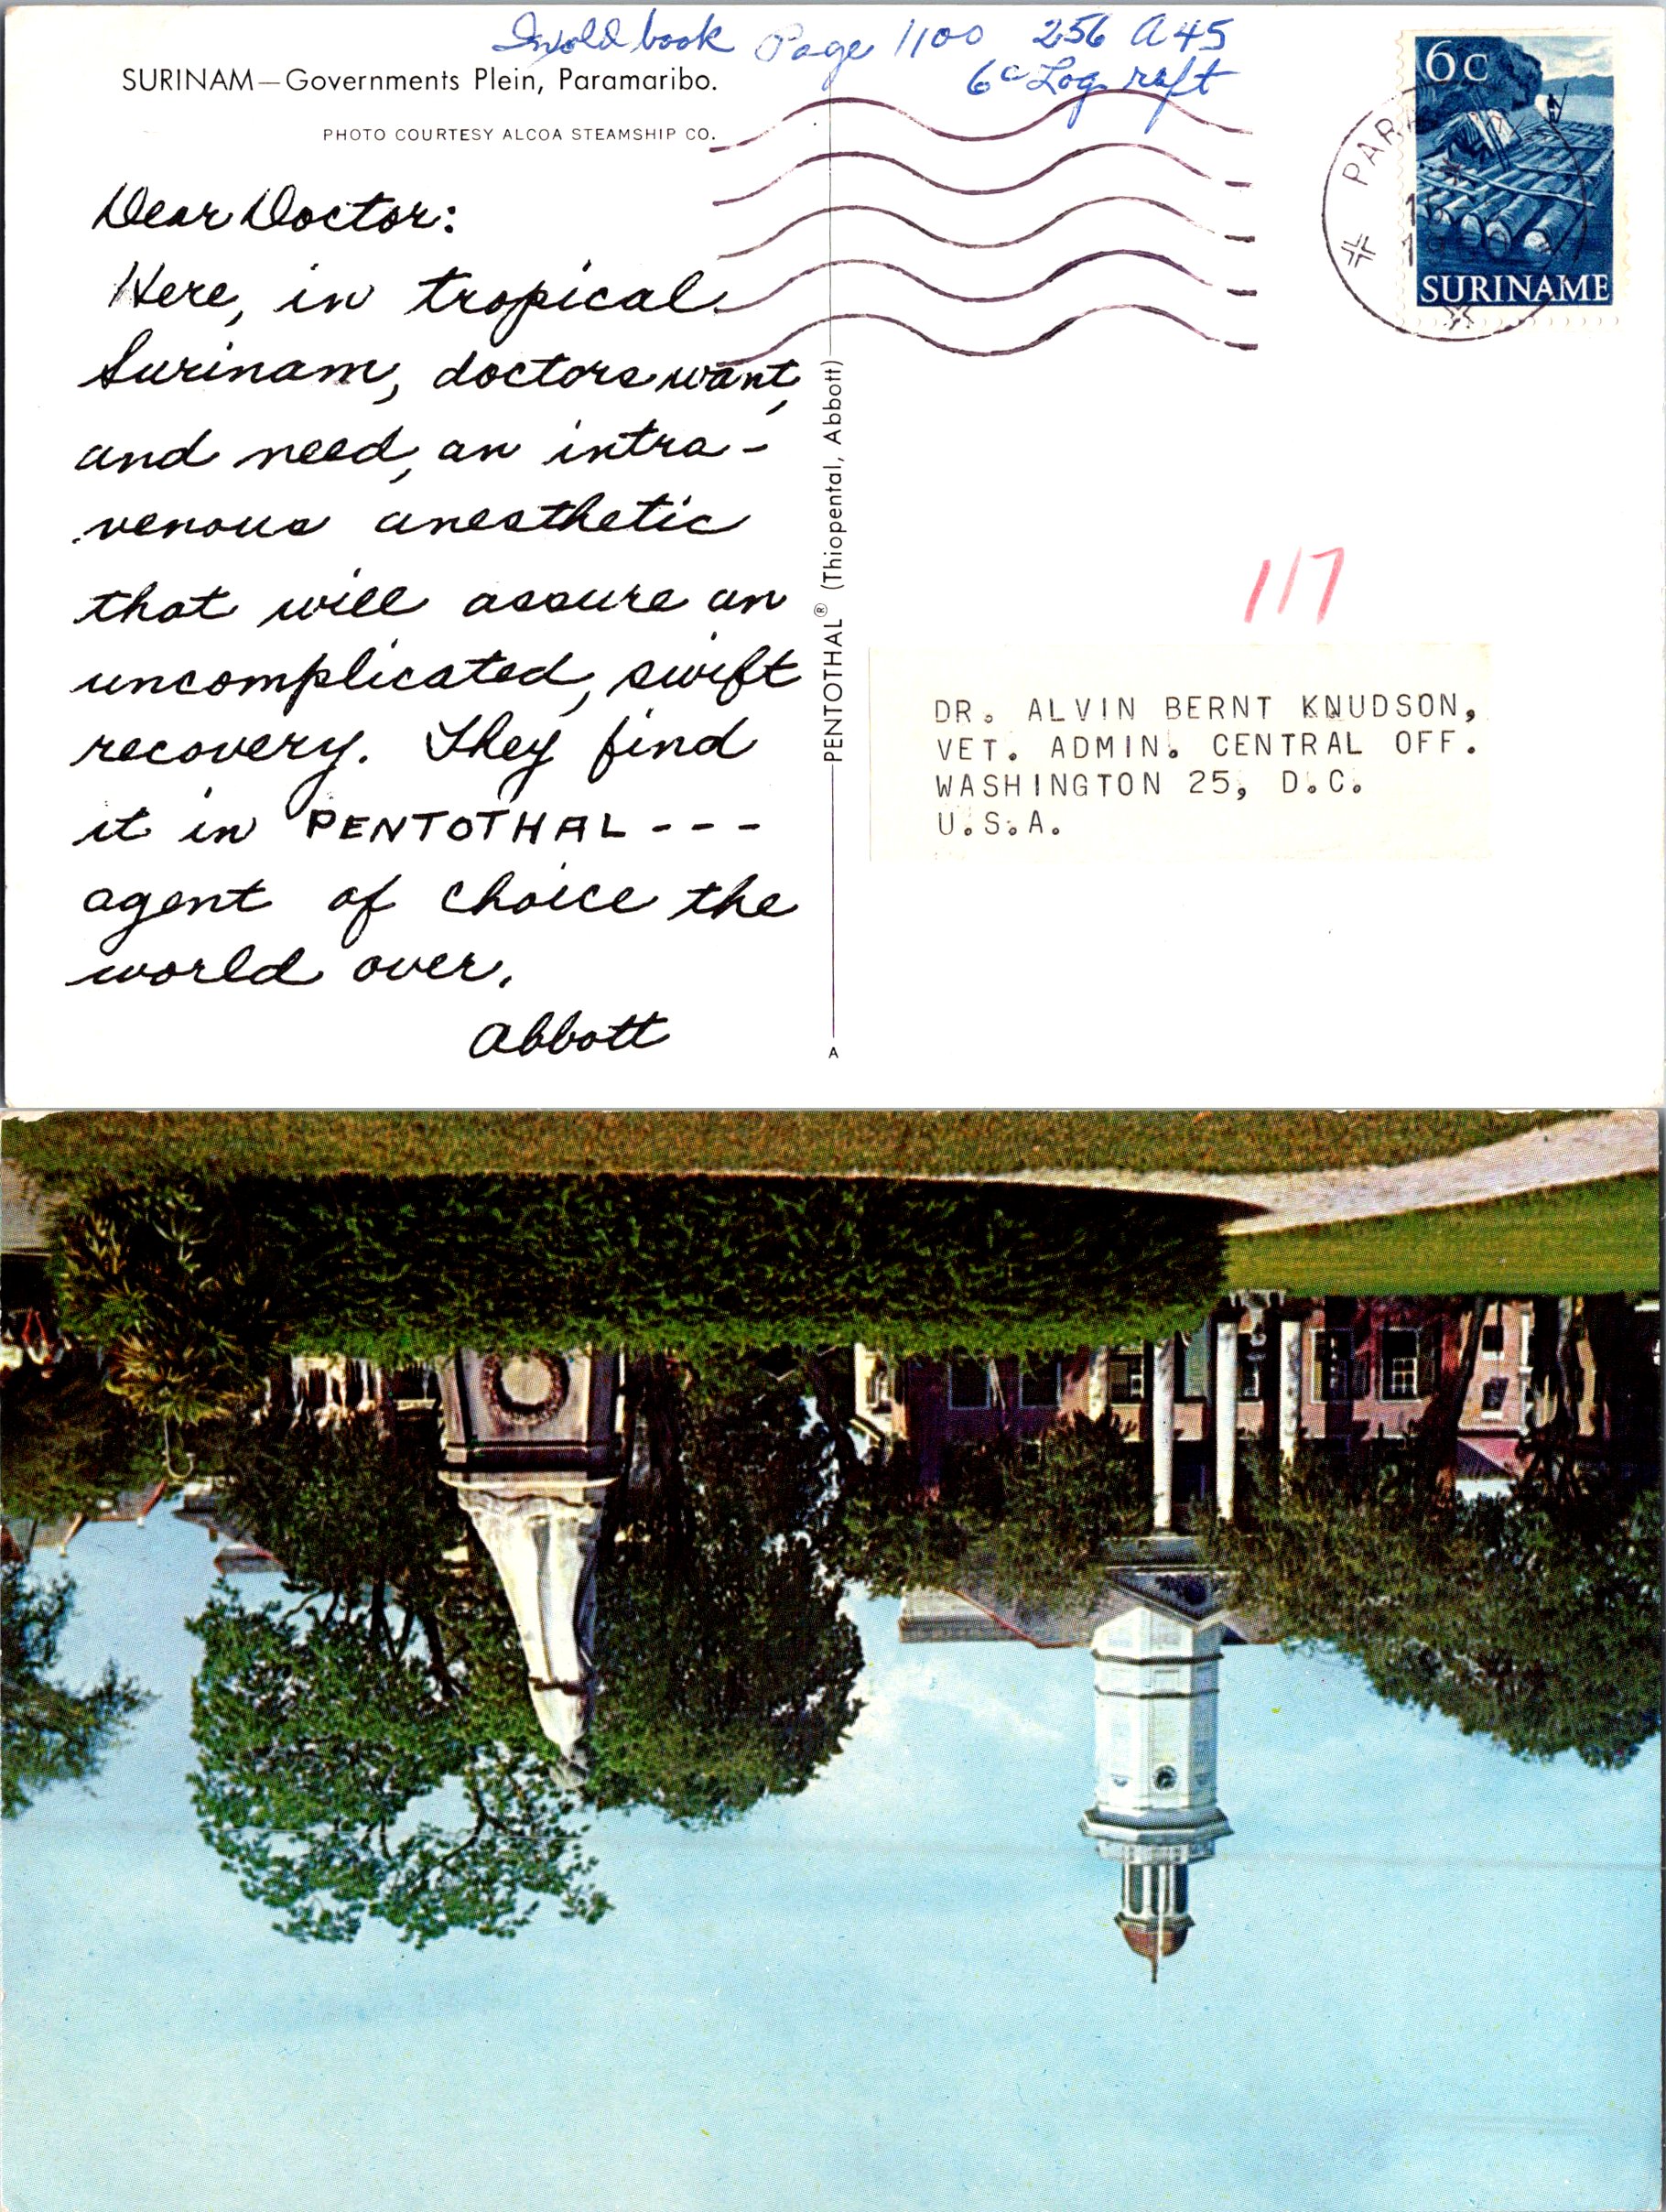 In old book Page 1100 256 A45
6c Log raft
SURINAM—Governments Plein, Paramaribo.
PHOTO COURTESY ALCOA STEAMSHIP CO.
6c
SURINAME
PARA
Dear Doctor:
Here, in tropical
Surinam, doctors want,
and need, an intra-
venous anesthetic
that will assure an
uncomplicated, swift
recovery. They find
it in PENTOTHAL---
agent of choice the
world over.
Abbott
PENTOTHAL® (Thiopental, Abbott)
A
117
DR. ALVIN BERNT KNUDSON,
VET. ADMIN. CENTRAL OFF.
WASHINGTON 25, D.C.
U.S.A.